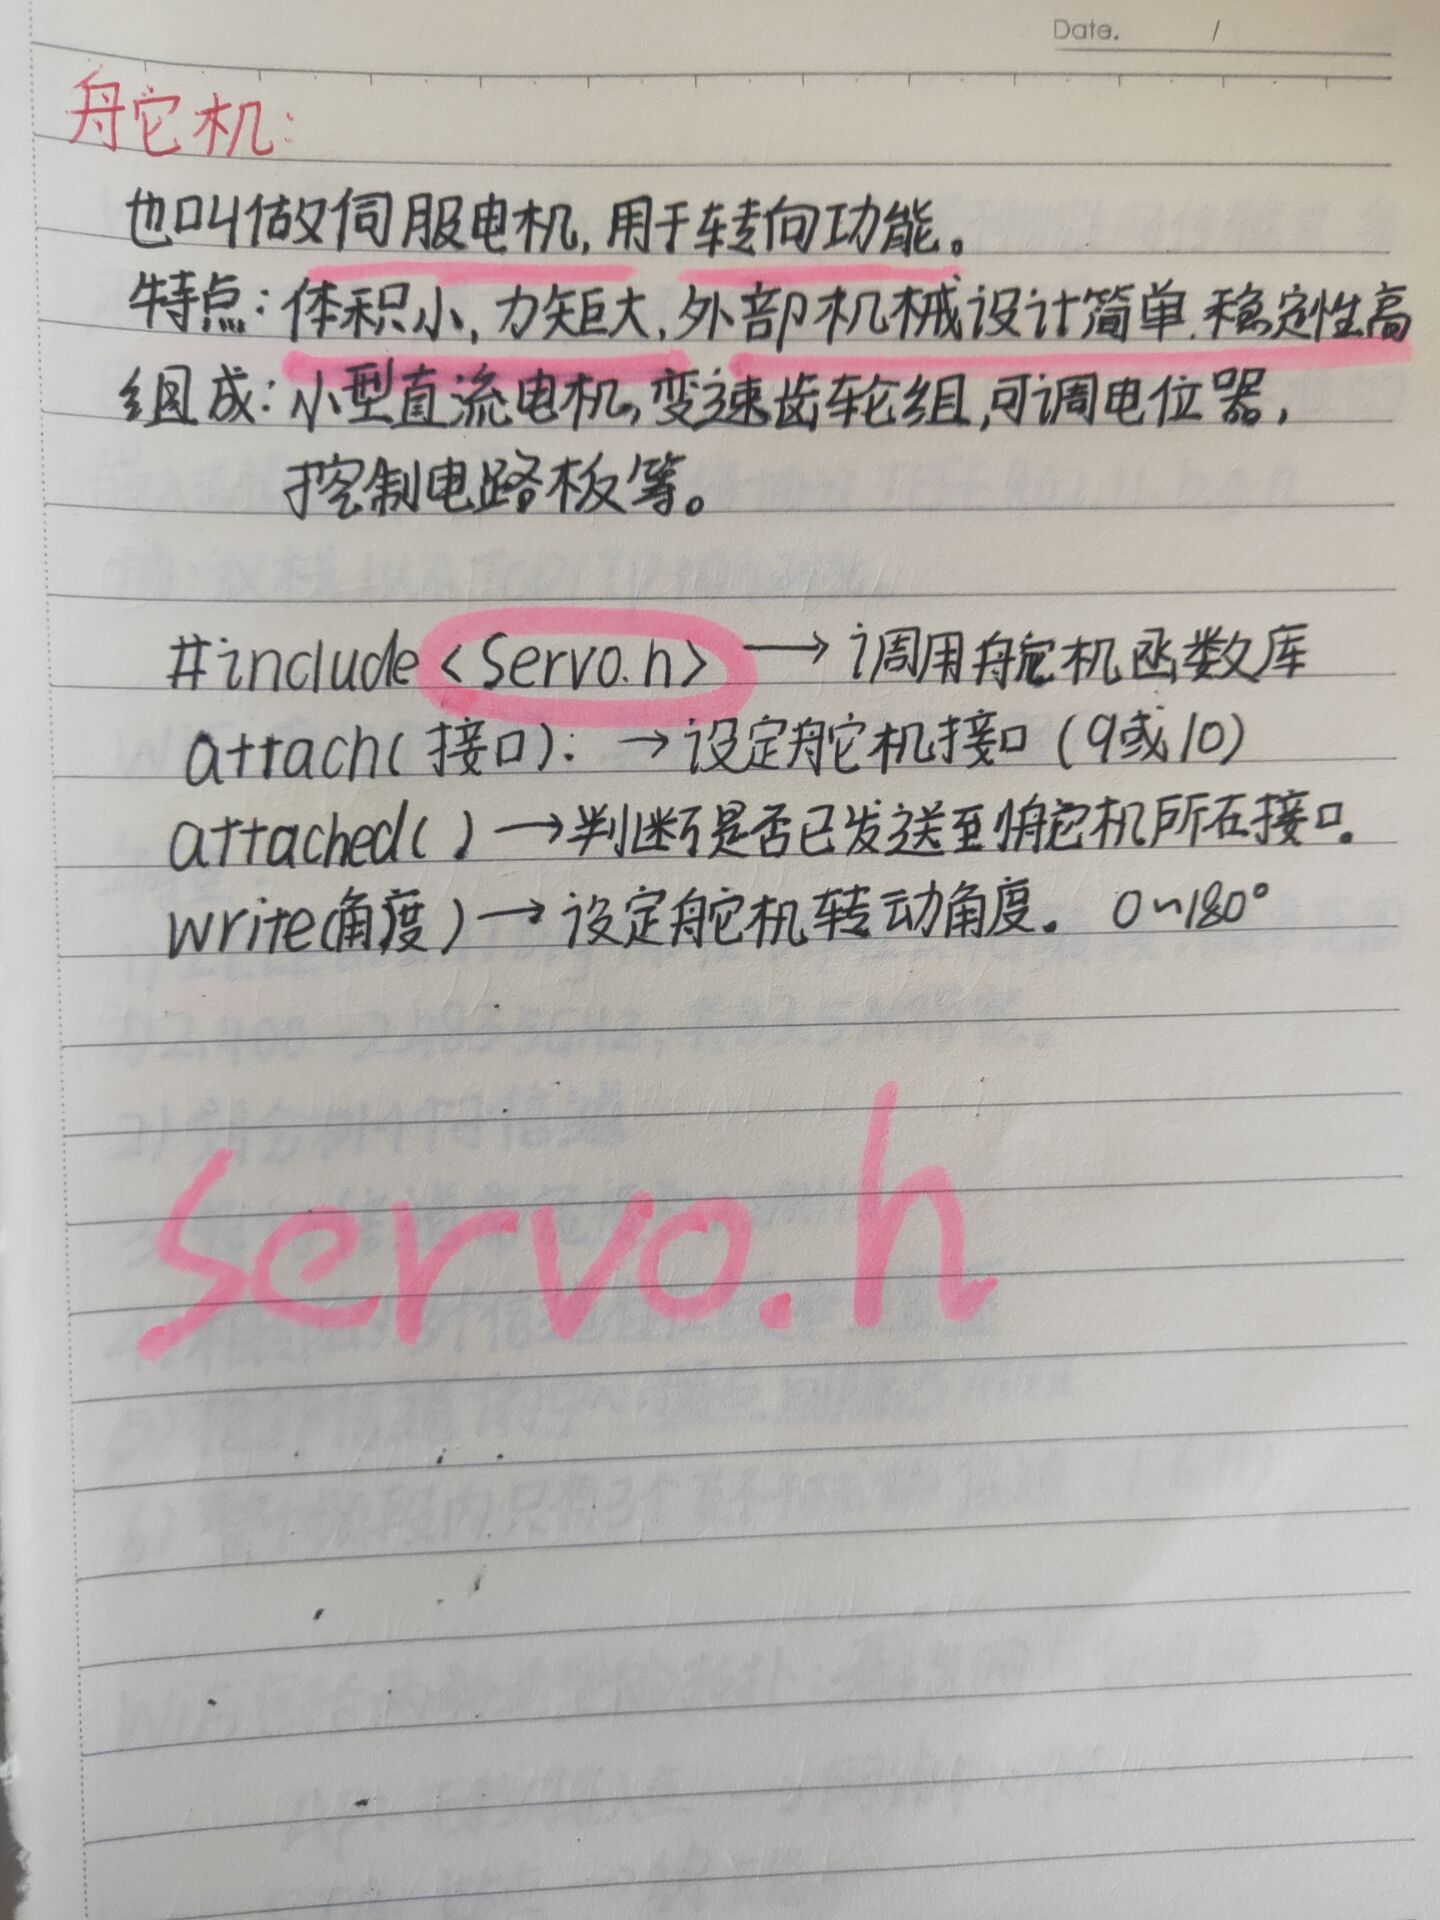 Date. /
舵机:
也叫做伺服电机,用于转向功能。
特点:体积小,力矩大,外部机械设计简单.稳定性高
组成:小型直流电机,变速齿轮组,可调电位器,
控制电路板等。
#include <Servo.h> → 调用舵机函数库
attach(接口): → 设定舵机接口(9或10)
attached() → 判断是否已发送至舵机所在接口.
write(角度) → 设定舵机转动角度. 0~180°
servo.h